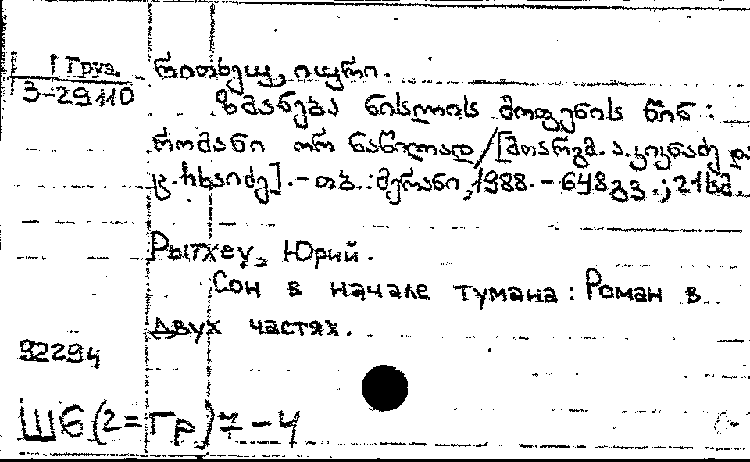 Груз.
3-29110
რითხეუ, იური.
ზმანება ნისლის მოფენის წინ :
რომანი ორ ნაწილად / [მთარგმ. ა. კიკნაძე და
ც. ჩხაიძე]. - თბ. : მერანი, 1988. - 648 გვ. ; 21 სმ.
Рытхеу, Юрий.
Сон в начале тумана : Роман в
двух частях.
92294
Ш6(2=Гр)7-4